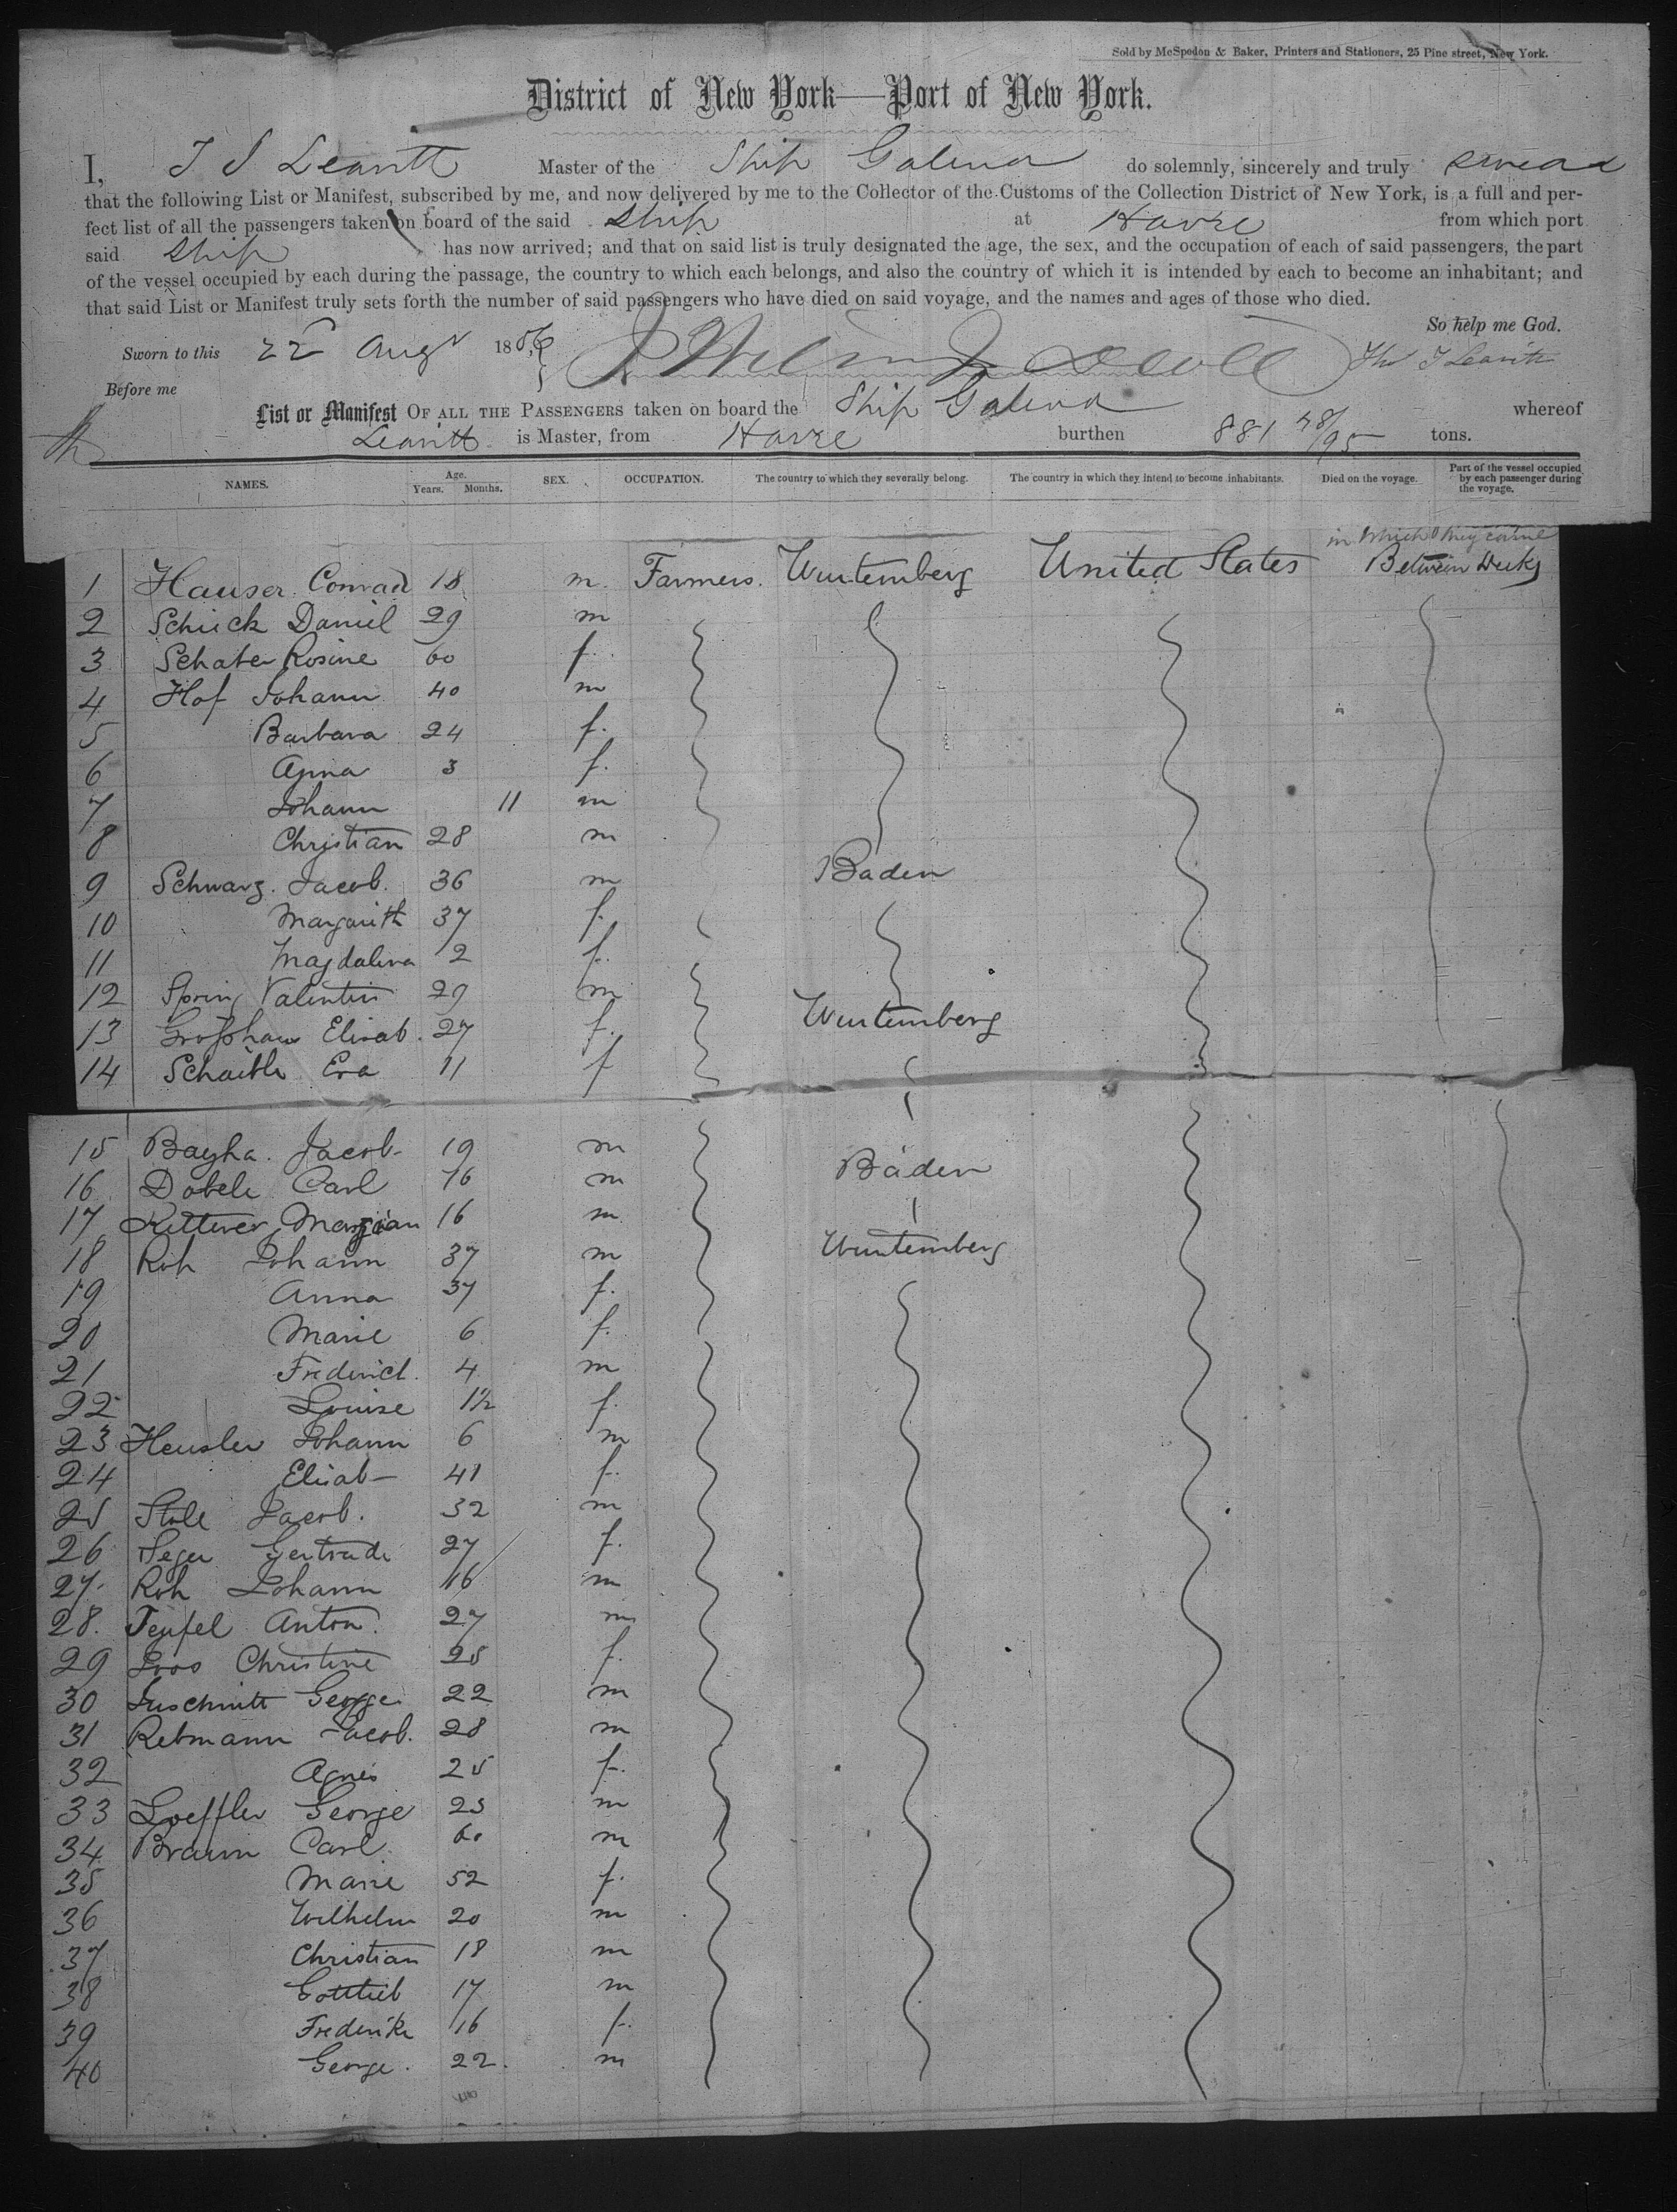 Sold by McSpedon & Baker, Printers and Stationers, 25 Pine street, New York.
District of New York—Port of New York.
I, T S Leavitt Master of the Ship Galena do solemnly, sincerely and truly swear
that the following List or Manifest, subscribed by me, and now delivered by me to the Collector of the Customs of the Collection District of New York, is a full and per-
fect list of all the passengers taken on board of the said Ship at Havre from which port
said Ship has now arrived; and that on said list is truly designated the age, the sex, and the occupation of each of said passengers, the part
of the vessel occupied by each during the passage, the country to which each belongs, and also the country of which it is intended by each to become an inhabitant; and
that said List or Manifest truly sets forth the number of said passengers who have died on said voyage, and the names and ages of those who died.
So help me God.
Sworn to this 22 Augt 1856 Leavitt
Before me
List or Manifest OF ALL THE PASSENGERS taken on board the Ship Galena whereof
Leavitt is Master, from Havre burthen 881 48/95 tons.
NAMES. Age. Years. Months. SEX. OCCUPATION. The country to which they severally belong. The country in which they intend to become inhabitants. Died on the voyage. Part of the vessel occupied by each passenger during the voyage.
in which they came
1 Hauser Conrad 18 m. Farmers. Wurtemberg United States Between Decks
2 Schuck Daniel 29 m
3 Schafer Rosine 60 f.
4 Hof Johann 40 m
5 Barbara 24 f.
6 Anna 3 f.
7 Johann 11 m
8 Christian 28 m
9 Schwarz. Jacob. 36 m Baden
10 Margarith 37 f.
11 Magdalena 2 f.
12 Spring Valentin 29 m
13 Grosshaus Elisab. 27 f. Wurtemberg
14 Schaible Eva 11 f
15 Bayha. Jacob 19 m
16 Dobele Carl 76 m Baden
17 Ketterer 16 m
18 Roh Johann 37 m Wurtemberg
19 Anna 37 f.
20 Marie 6 f.
21 Frederich. 4 m
22 Louise 1½ f.
23 Heusler Johann 6 m
24 Elisab— 41 f.
25 Stoll Jacob. 32 m
26 Seger Gertrude 27 f.
27. Roh Johann 16 m
28. Teufel Anton. 27 m
29 Loos Christine 25 f.
30 George 22 m
31 Rebmann Jacob. 28 m
32 Agnes 25 f.
33 Loeffler George 23 m
34 Braun Carl 60 m
35 Marie 52 f.
36 Wilhelm 20 m
37 Christian 18 m
38 Gottlieb 17 m
39 Frederike 16 f.
40 George. 22. m